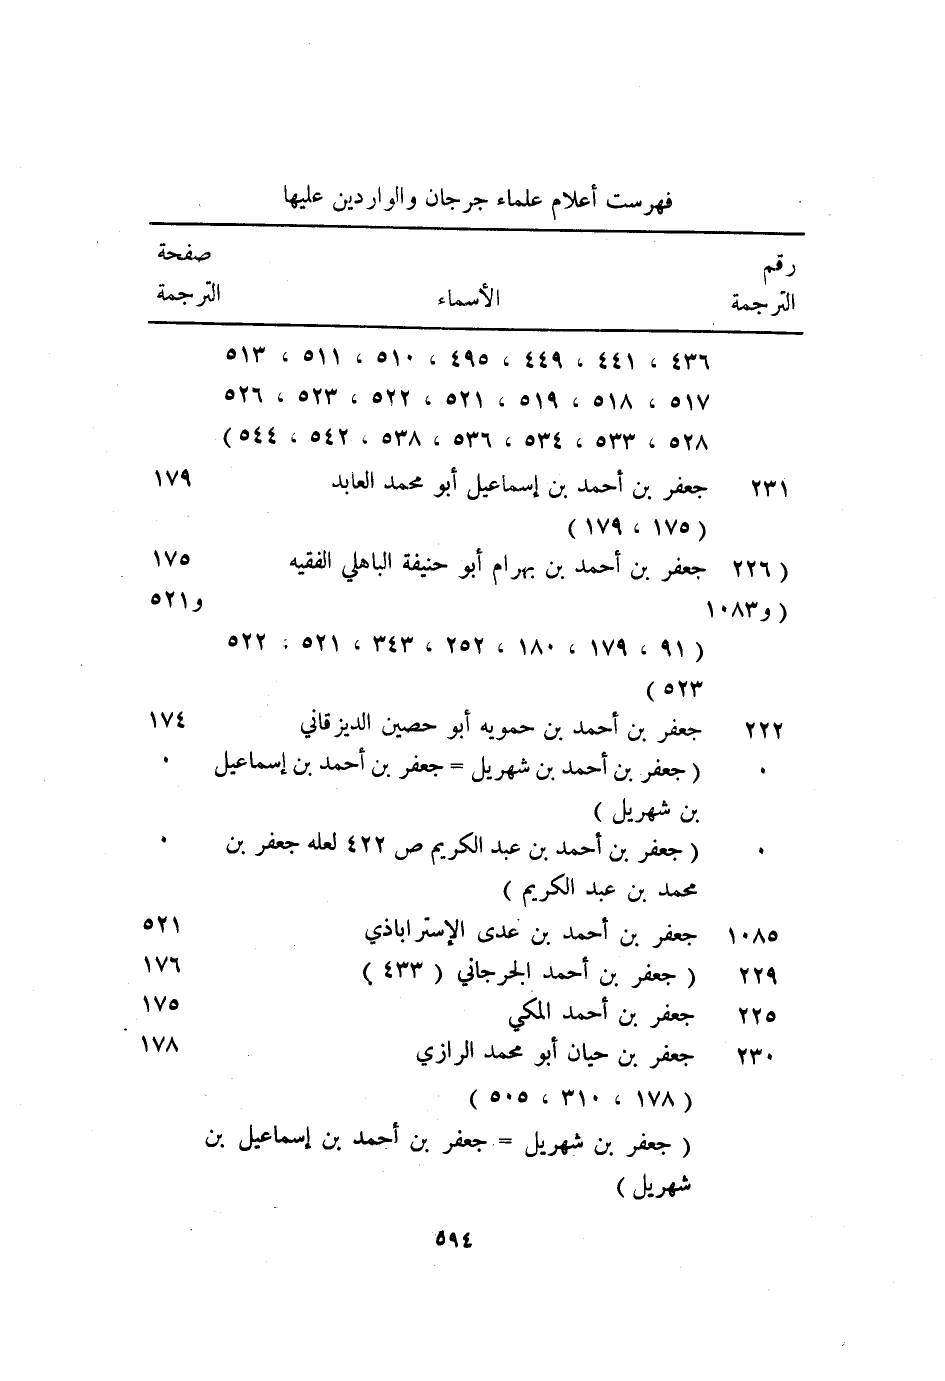 فهرست أعلام علماء جرجان والواردين عليها
رقم صفحة
الترجمة الأسماء الترجمة
٤٣٦ ، ٤٤١ ، ٤٤٩ ، ٤٩٥ ، ٥١٠ ، ٥١١ ، ٥١٣
٥١٧ ، ٥١٨ ، ٥١٩ ، ٥٢١ ، ٥٢٢ ، ٥٢٣ ، ٥٢٦
٥٢٨ ، ٥٣٣ ، ٥٣٤ ، ٥٣٦ ، ٥٣٨ ، ٥٤٢ ، ٥٤٤ )
٢٣١ جعفر بن أحمد بن إسماعيل أبو محمد العابد ١٧٩
( ١٧٥ ، ١٧٩ )
( ٢٢٦ جعفر بن أحمد بن بهرام أبو حنيفة الباهلي الفقيه ١٧٥
( و١٠٨٣ و٥٢١
( ٩١ ، ١٧٩ ، ١٨٠ ، ٢٥٢ ، ٣٤٣ ، ٥٢١ ، ٥٢٢
٥٢٣ )
٢٢٢ جعفر بن أحمد بن حمويه أبو حصين الديزقاني ١٧٤
٠ ( جعفر بن أحمد بن شهريل = جعفر بن أحمد بن إسماعيل ٠
بن شهريل )
٠ ( جعفر بن أحمد بن عبد الكريم ص ٤٢٢ لعله جعفر بن ٠
محمد بن عبد الكريم )
١٠٨٥ جعفر بن أحمد بن عدى الإستراباذي ٥٢١
٢٢٩ ( جعفر بن أحمد الجرجاني ( ٤٣٣ ) ١٧٦
٢٢٥ جعفر بن أحمد المكي ١٧٥
٢٣٠ جعفر بن حيان أبو محمد الرازي ١٧٨
( ١٧٨ ، ٣١٠ ، ٥٠٥ )
( جعفر بن شهريل = جعفر بن أحمد بن إسماعيل بن
شهريل )
٥٩٤